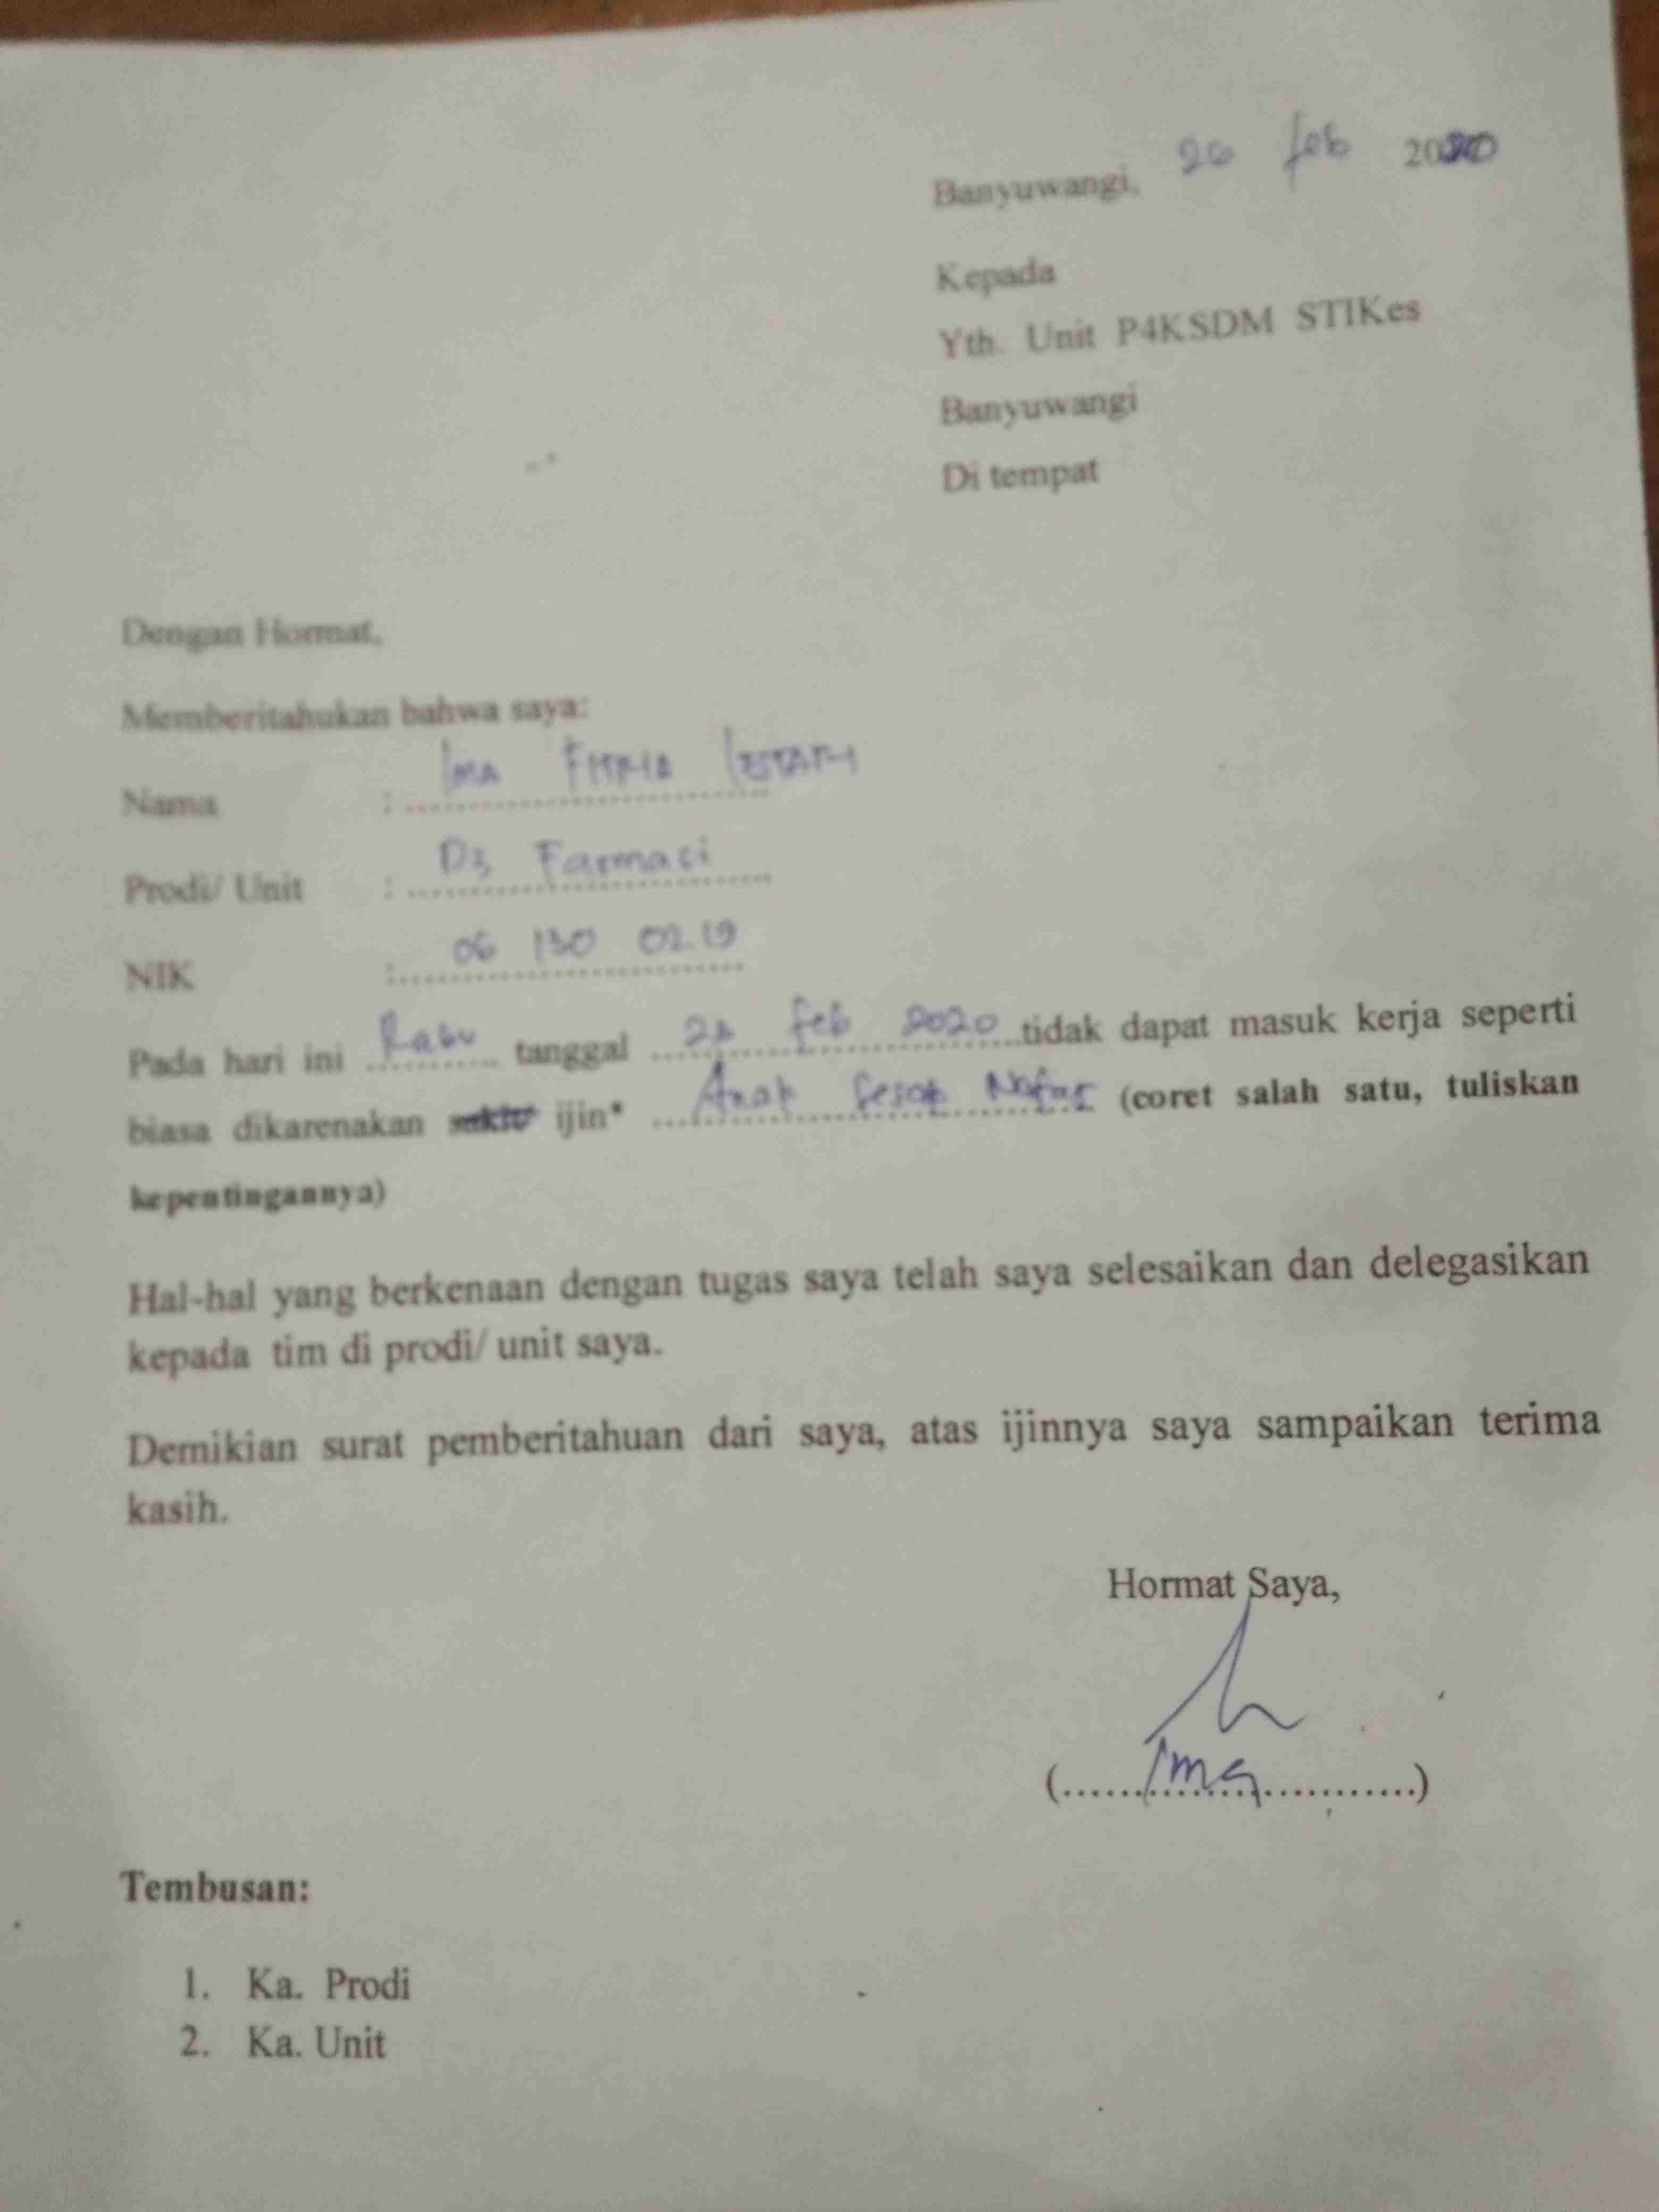 Banyuwangi, 26 feb 2020
Kepada
Yth. Unit P4KSDM STIKes
Banyuwangi
Di tempat
Dengan Hormat,
Memberitahukan bahwa saya:
Nama : Ima Fitria Lestari
Prodi/ Unit : D3 Farmasi
NIK : 06 130 02.19
Pada hari ini Rabu tanggal feb 2020 tidak dapat masuk kerja seperti
biasa dikarenakan sakit/ ijin* Anak Sesak Nafas (coret salah satu, tuliskan
kepentingannya)
Hal-hal yang berkenaan dengan tugas saya telah saya selesaikan dan delegasikan
kepada tim di prodi/ unit saya.
Demikian surat pemberitahuan dari saya, atas ijinnya saya sampaikan terima
kasih.
Hormat Saya,
(......Ima............)
Tembusan:
1. Ka. Prodi
2. Ka. Unit